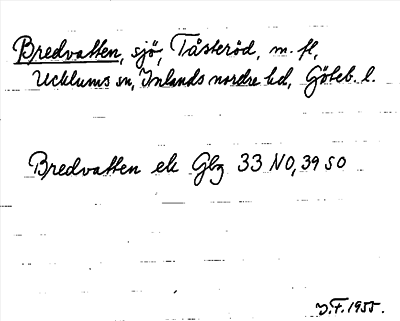 Bredvatten, sjö, Tåsteröd, m. fl,
Ucklums sn, Inlands nordre hd, Göteb. l.
Bredvatten ek Gbg 33 NO, 39 SO
J.F. 1955.